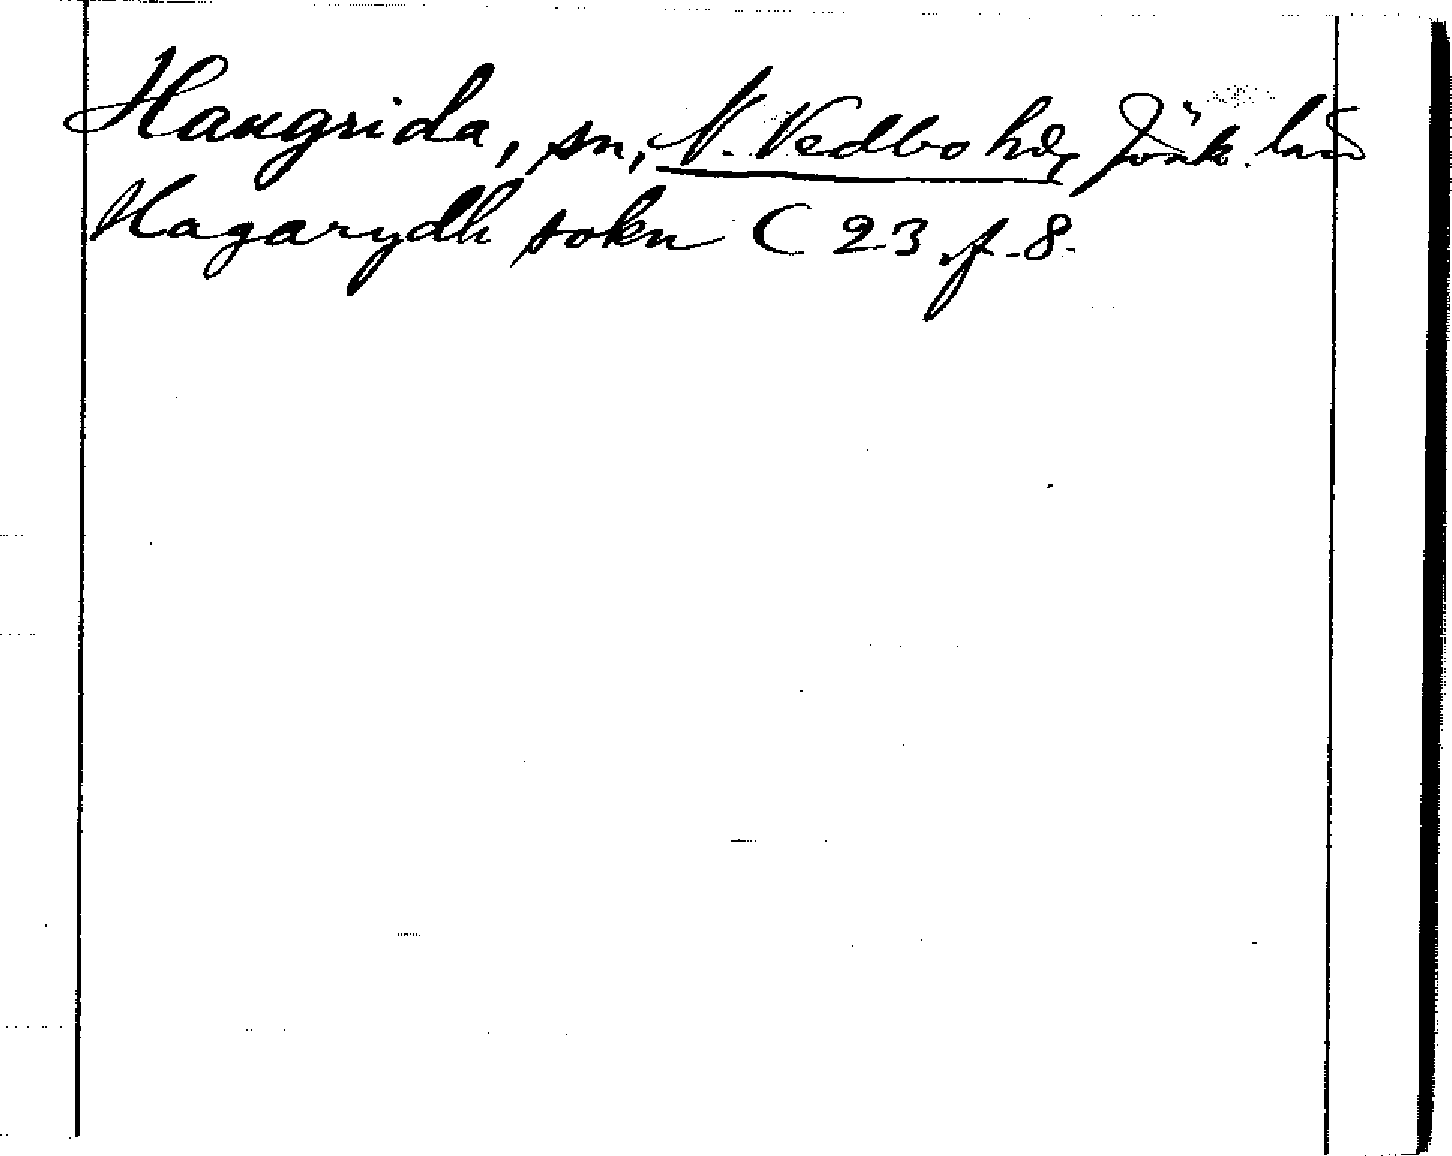 Haurida, sn, N. Vedbo hd, Jönk. län
Hagarydh sokn C 23 f. 8.